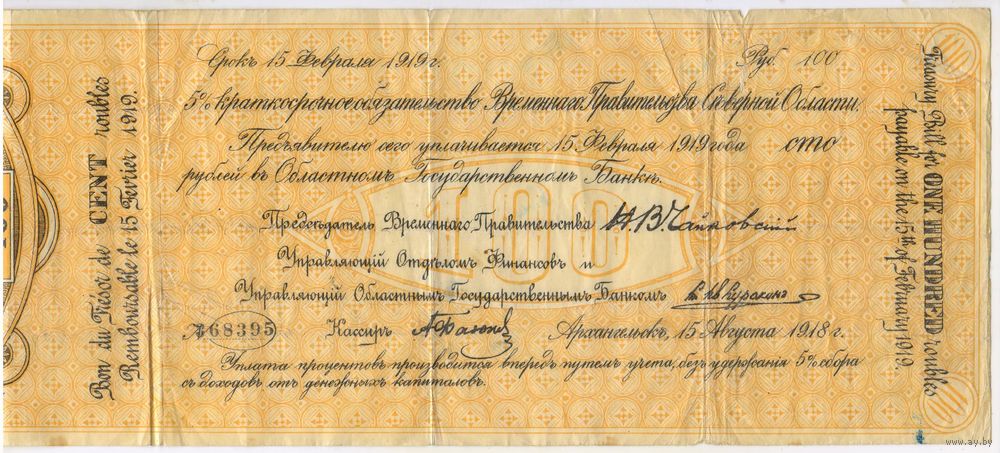 Bon du Trésor de CENT roubles
Remboursable le 15 Fevrier 1919.
Срокъ 15 Февраля 1919 г. Руб. 100
5% краткосрочное обязательство Временнаго Правительства Сѣверной Области.
Предъявителю сего уплачивается 15 Февраля 1919 года сто
рублей въ Областномъ Государственномъ Банкѣ.
100
Предсѣдатель Временнаго Правительства Н. В. Чайковскій
Управляющій Отдѣломъ Финансовъ и
Управляющій Областнымъ Государственнымъ Банкомъ
№ 68395 Кассиръ Архангельскъ, 15 Августа 1918 г.
Уплата процентовъ производится впередъ путемъ учета, безъ удержанія 5% сбора
съ доходовъ отъ денежныхъ капиталовъ.
Treasury Bill for ONE HUNDRED roubles
payable on the 15th of February 1919.
www.ay.by